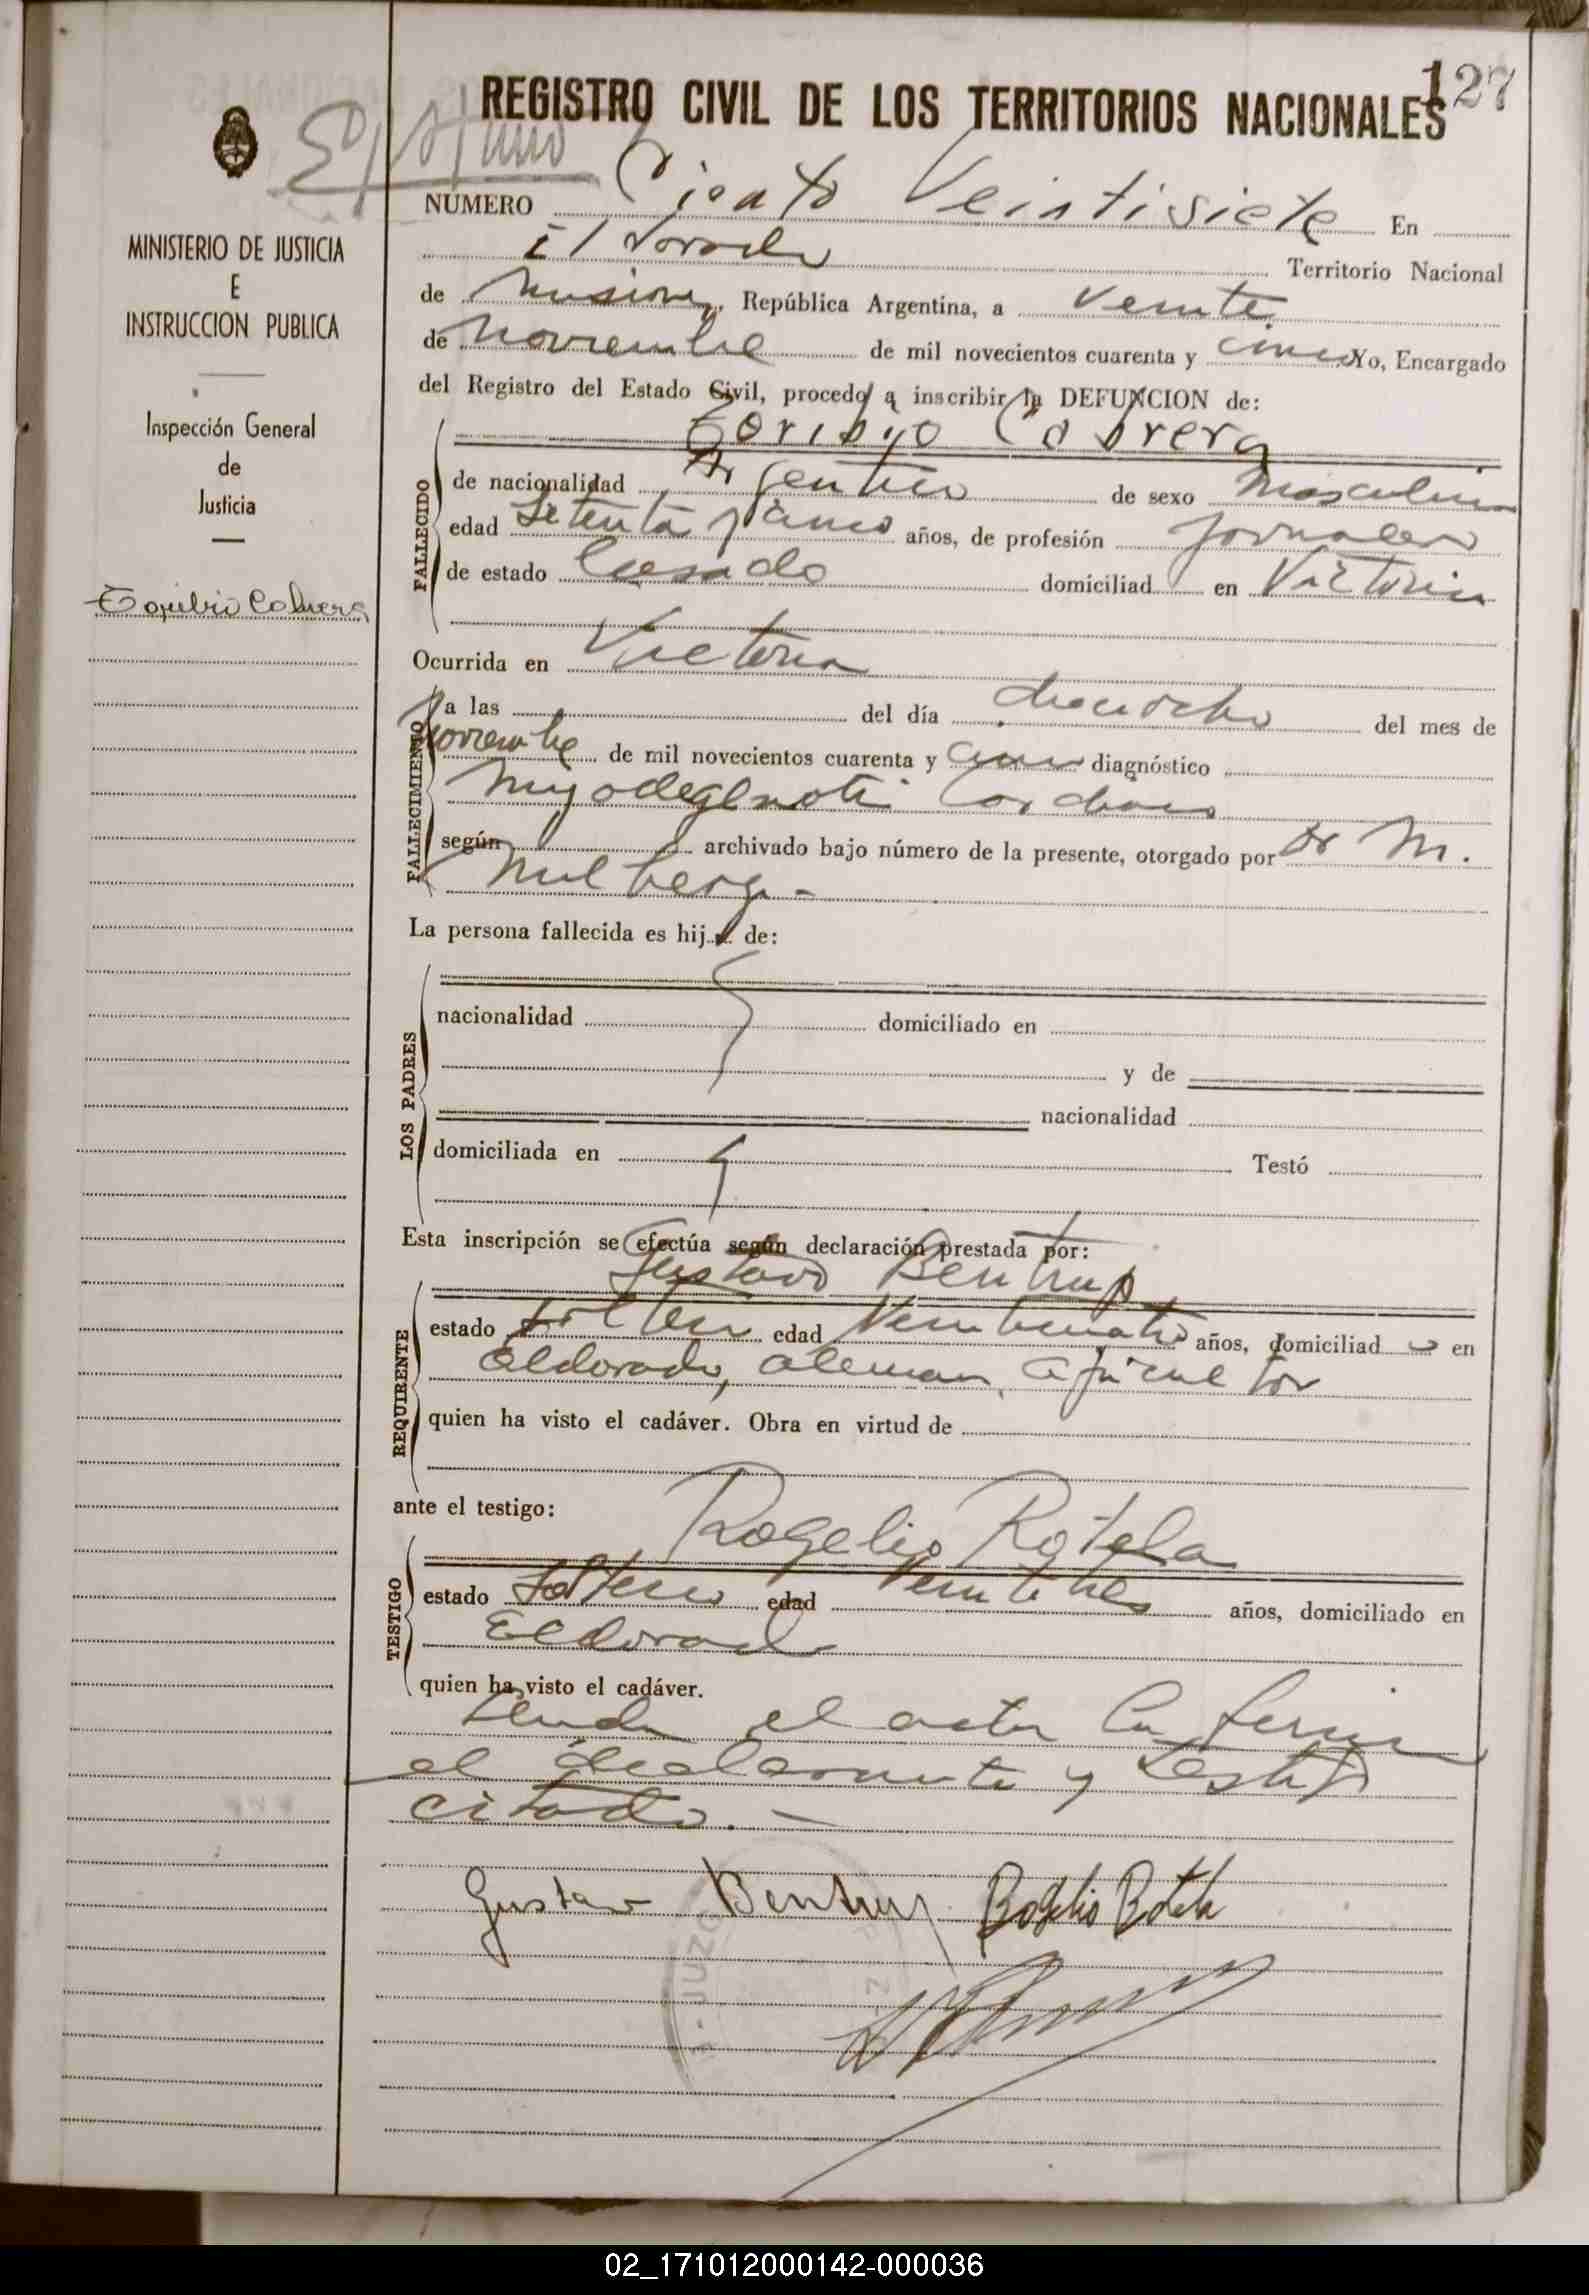 127
REGISTRO CIVIL DE LOS TERRITORIOS NACIONALES
MINISTERIO DE JUSTICIA
E
INSTRUCCION PUBLICA
Inspección General
de
Justicia
Toribio Cabrera
NUMERO Ciento Veintisiete En
Eldorado Territorio Nacional
de Misiones, República Argentina, a veinte
de noviembre de mil novecientos cuarenta y cinco Yo, Encargado
del Registro del Estado Civil, procedo a inscribir la DEFUNCION de:
Toribio Cabrera
FALLECIDO
de nacionalidad Argentino de sexo masculino
edad Setenta y cinco años, de profesión jornalero
de estado Casado domiciliad en Victoria
Ocurrida en Victoria
FALLECIMIENTO
a las del día dieciocho del mes de
noviembre de mil novecientos cuarenta y cinco diagnóstico
según archivado bajo número de la presente, otorgado por Dr M.
La persona fallecida es hij de:
LOS PADRES
nacionalidad domiciliado en
y de
nacionalidad
domiciliada en Testó
Esta inscripción se efectúa según declaración prestada por:
Gustavo Bentrup
REQUIRENTE
estado soltero edad Veinticuatro años, domiciliad o en
Eldorado, aleman, agricultor
quien ha visto el cadáver. Obra en virtud de
ante el testigo:
Rogelio Rotela
TESTIGO
estado Soltero edad Veintitres años, domiciliado en
Eldorado
quien ha visto el cadáver.
el acta la
el declarante y testigo
citado.
Gustav Bentrup Rogelio Rotela
02_171012000142-000036